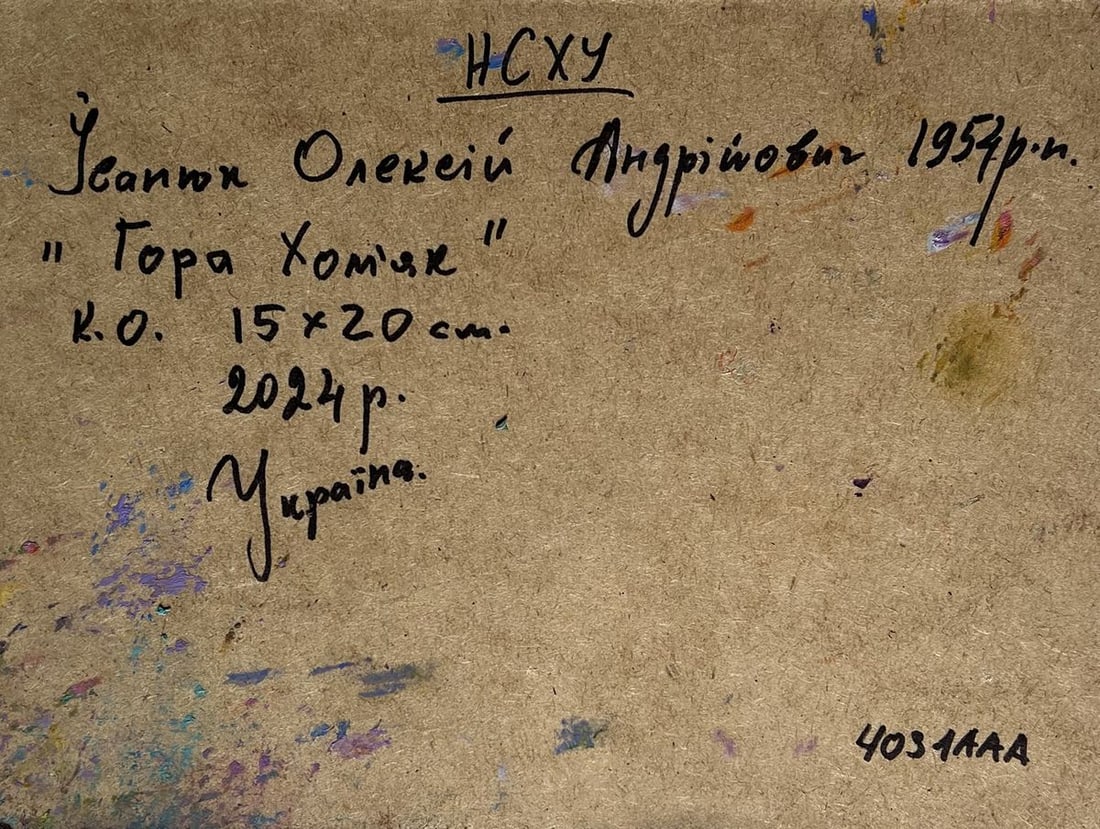 НСХУ
Іванюк Олексій Андрійович 1954р.н.
" Гора Хом'як "
К.О. 15×20 см.
2024 р.
Україна.
4031AAA